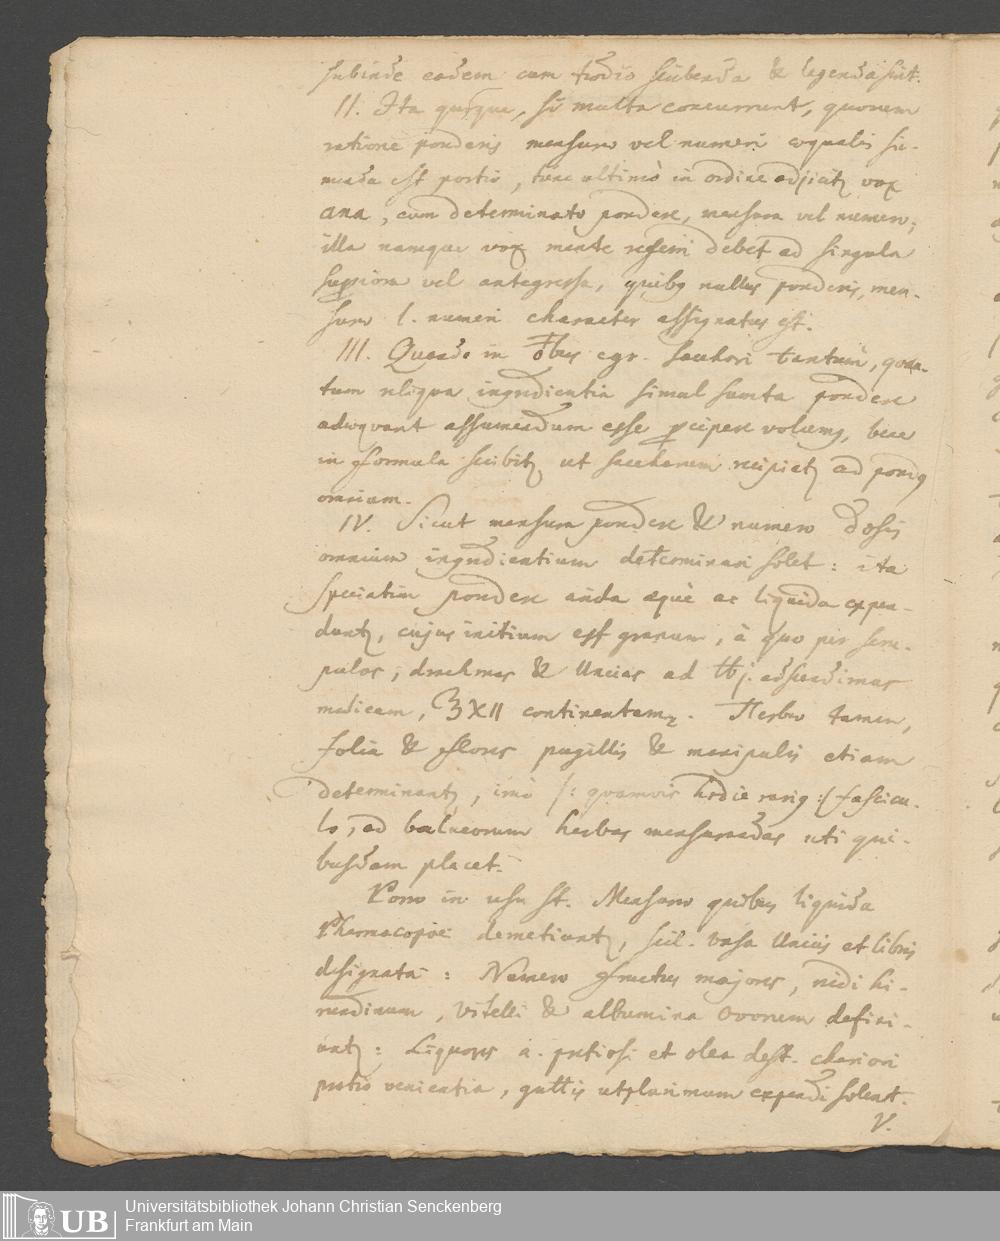 subinde eadem cum scribenda & legenda sint.
II. Ita quoque, si multa concurrunt, quorum
ratione ponderis mensuræ vel numeri æqualis su-
menda est portio, tunc ultimò in ordine adjicitꝛ vox
ana, cum determinato pondere, mensura vel numero;
illa namque vox mente referri debet ad singula
superiora vel antegressa, quibꝯ nullus ponderis, men-
suræ l. numeri character assignatus est.
III. Quando in egr. sacchari tantum, quan-
tum reliqua ingredientia simul sumta pondere
adæquant assumendum esse p̱cipere volumꝯ, hæc
in formula scribitꝛ, ut saccharum recipiatꝛ ad pondꝯ
omnium.
IV. Sicut mensura pondere & numero dosis
omnium ingredientium determinari solet: ita
speciatim pondere arida æquè ac liquida expen-
duntꝛ, cujus initium est granum, à quo per scru-
pulos, drachmas & Uncias ad ℔j. adscendimus
medicam, ℥XII continentem. Herbæ tamen,
folia & flores pugillis & manipulis etiam
determinantꝛ, imò /: quamvis hodie rariꝯ :/ fascicu-
lo, ad balneorum herbas mensurandas uti qui-
busdam placet.
Porro in usu st. Mensuræ quibus liquida
Pharmacopœi demetiuntꝛ, scil. vasa Unciis et libris
designata: Numero fructus majores, nidi hi-
rundinum, vitelli & albumina ovorum defini-
untꝛ: Liquores a. p̱tiosi et olea dest. chariori
p̱tio venientia, guttis utplurimum expendi solent.
V.
Universitätsbibliothek Johann Christian Senckenberg
Frankfurt am Main
UB